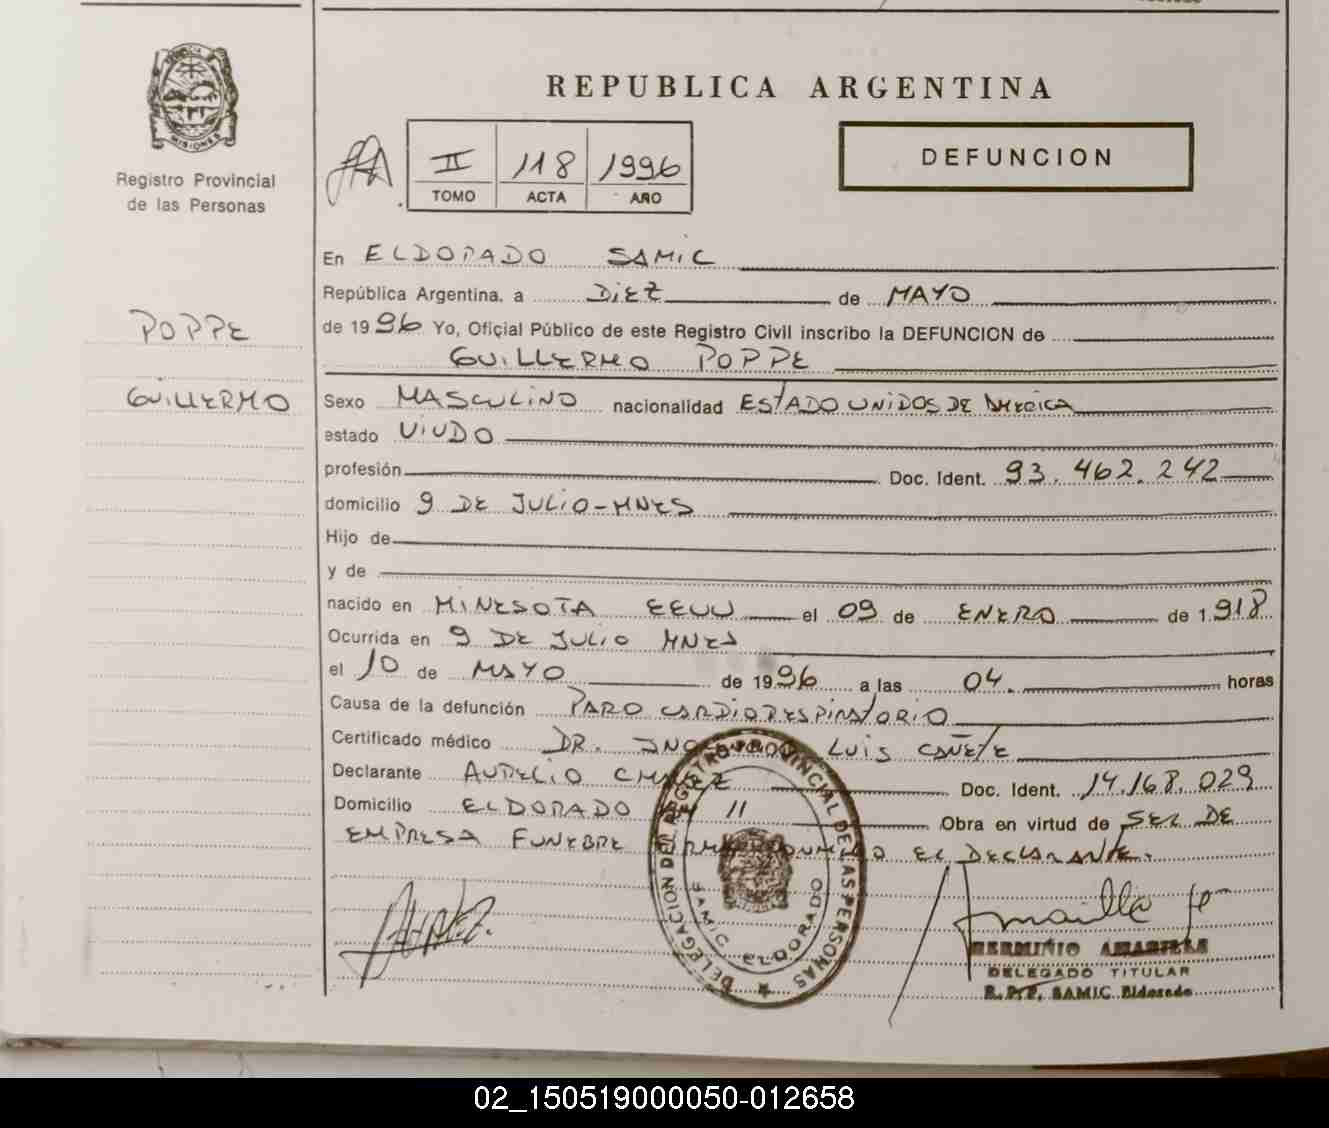 REPUBLICA ARGENTINA
MISIONES
Registro Provincial
de las Personas
II 118 1996
TOMO ACTA AÑO
DEFUNCION
POPPE
GUILLERMO
En ELDORADO SAMIC
República Argentina, a DIEZ de MAYO
de 1996 Yo, Oficial Público de este Registro Civil inscribo la DEFUNCION de
GUILLERMO POPPE
Sexo MASCULINO nacionalidad ESTADO UNIDOS DE AMERICA
estado VIUDO
profesión Doc. Ident. 93.462.242
domicilio 9 DE JULIO-MNES
Hijo de
y de
nacido en MINESOTA EEUU el 09 de ENERO de 1.918
Ocurrida en 9 DE JULIO MNES
el 10 de MAYO de 1996 a las 04. horas
Causa de la defunción PARO CARDIORESPIRATORIO
Certificado médico DR. LUIS CAÑETE
Declarante AURELIO Doc. Ident. 14.168.029
Domicilio ELDORADO 11 Obra en virtud de SER DE
EMPRESA FUNEBRE EL DECLARANTE.
DELEGACION DEL REGISTRO PROVINCIAL DE LAS PERSONAS
SAMIC ELDORADO
HERMINIO AMARILLA
DELEGADO TITULAR
R.P.P. SAMIC Eldorado
02_150519000050-012658